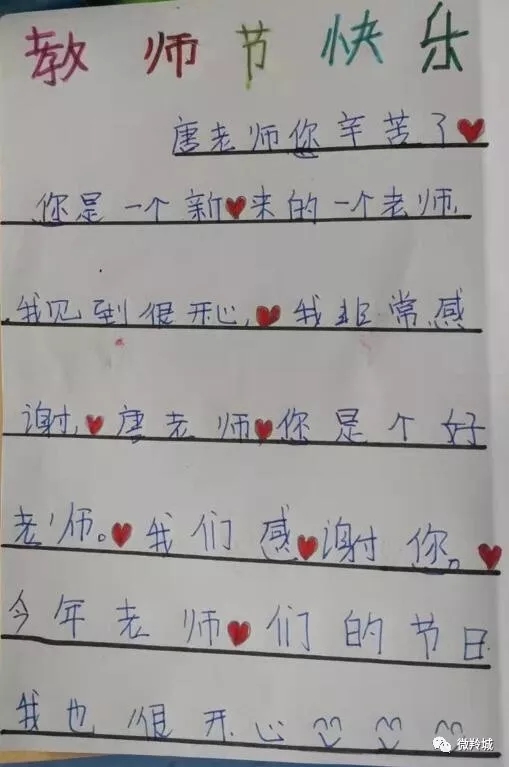 教师节快乐
唐老师您辛苦了❤
您是一个新❤来的一个老师,
我见到很开心,❤我非常感
谢,❤唐老师❤您是个好
老师。❤我们感❤谢您。❤
今年老师❤们的节日
我也很开心
微羚城